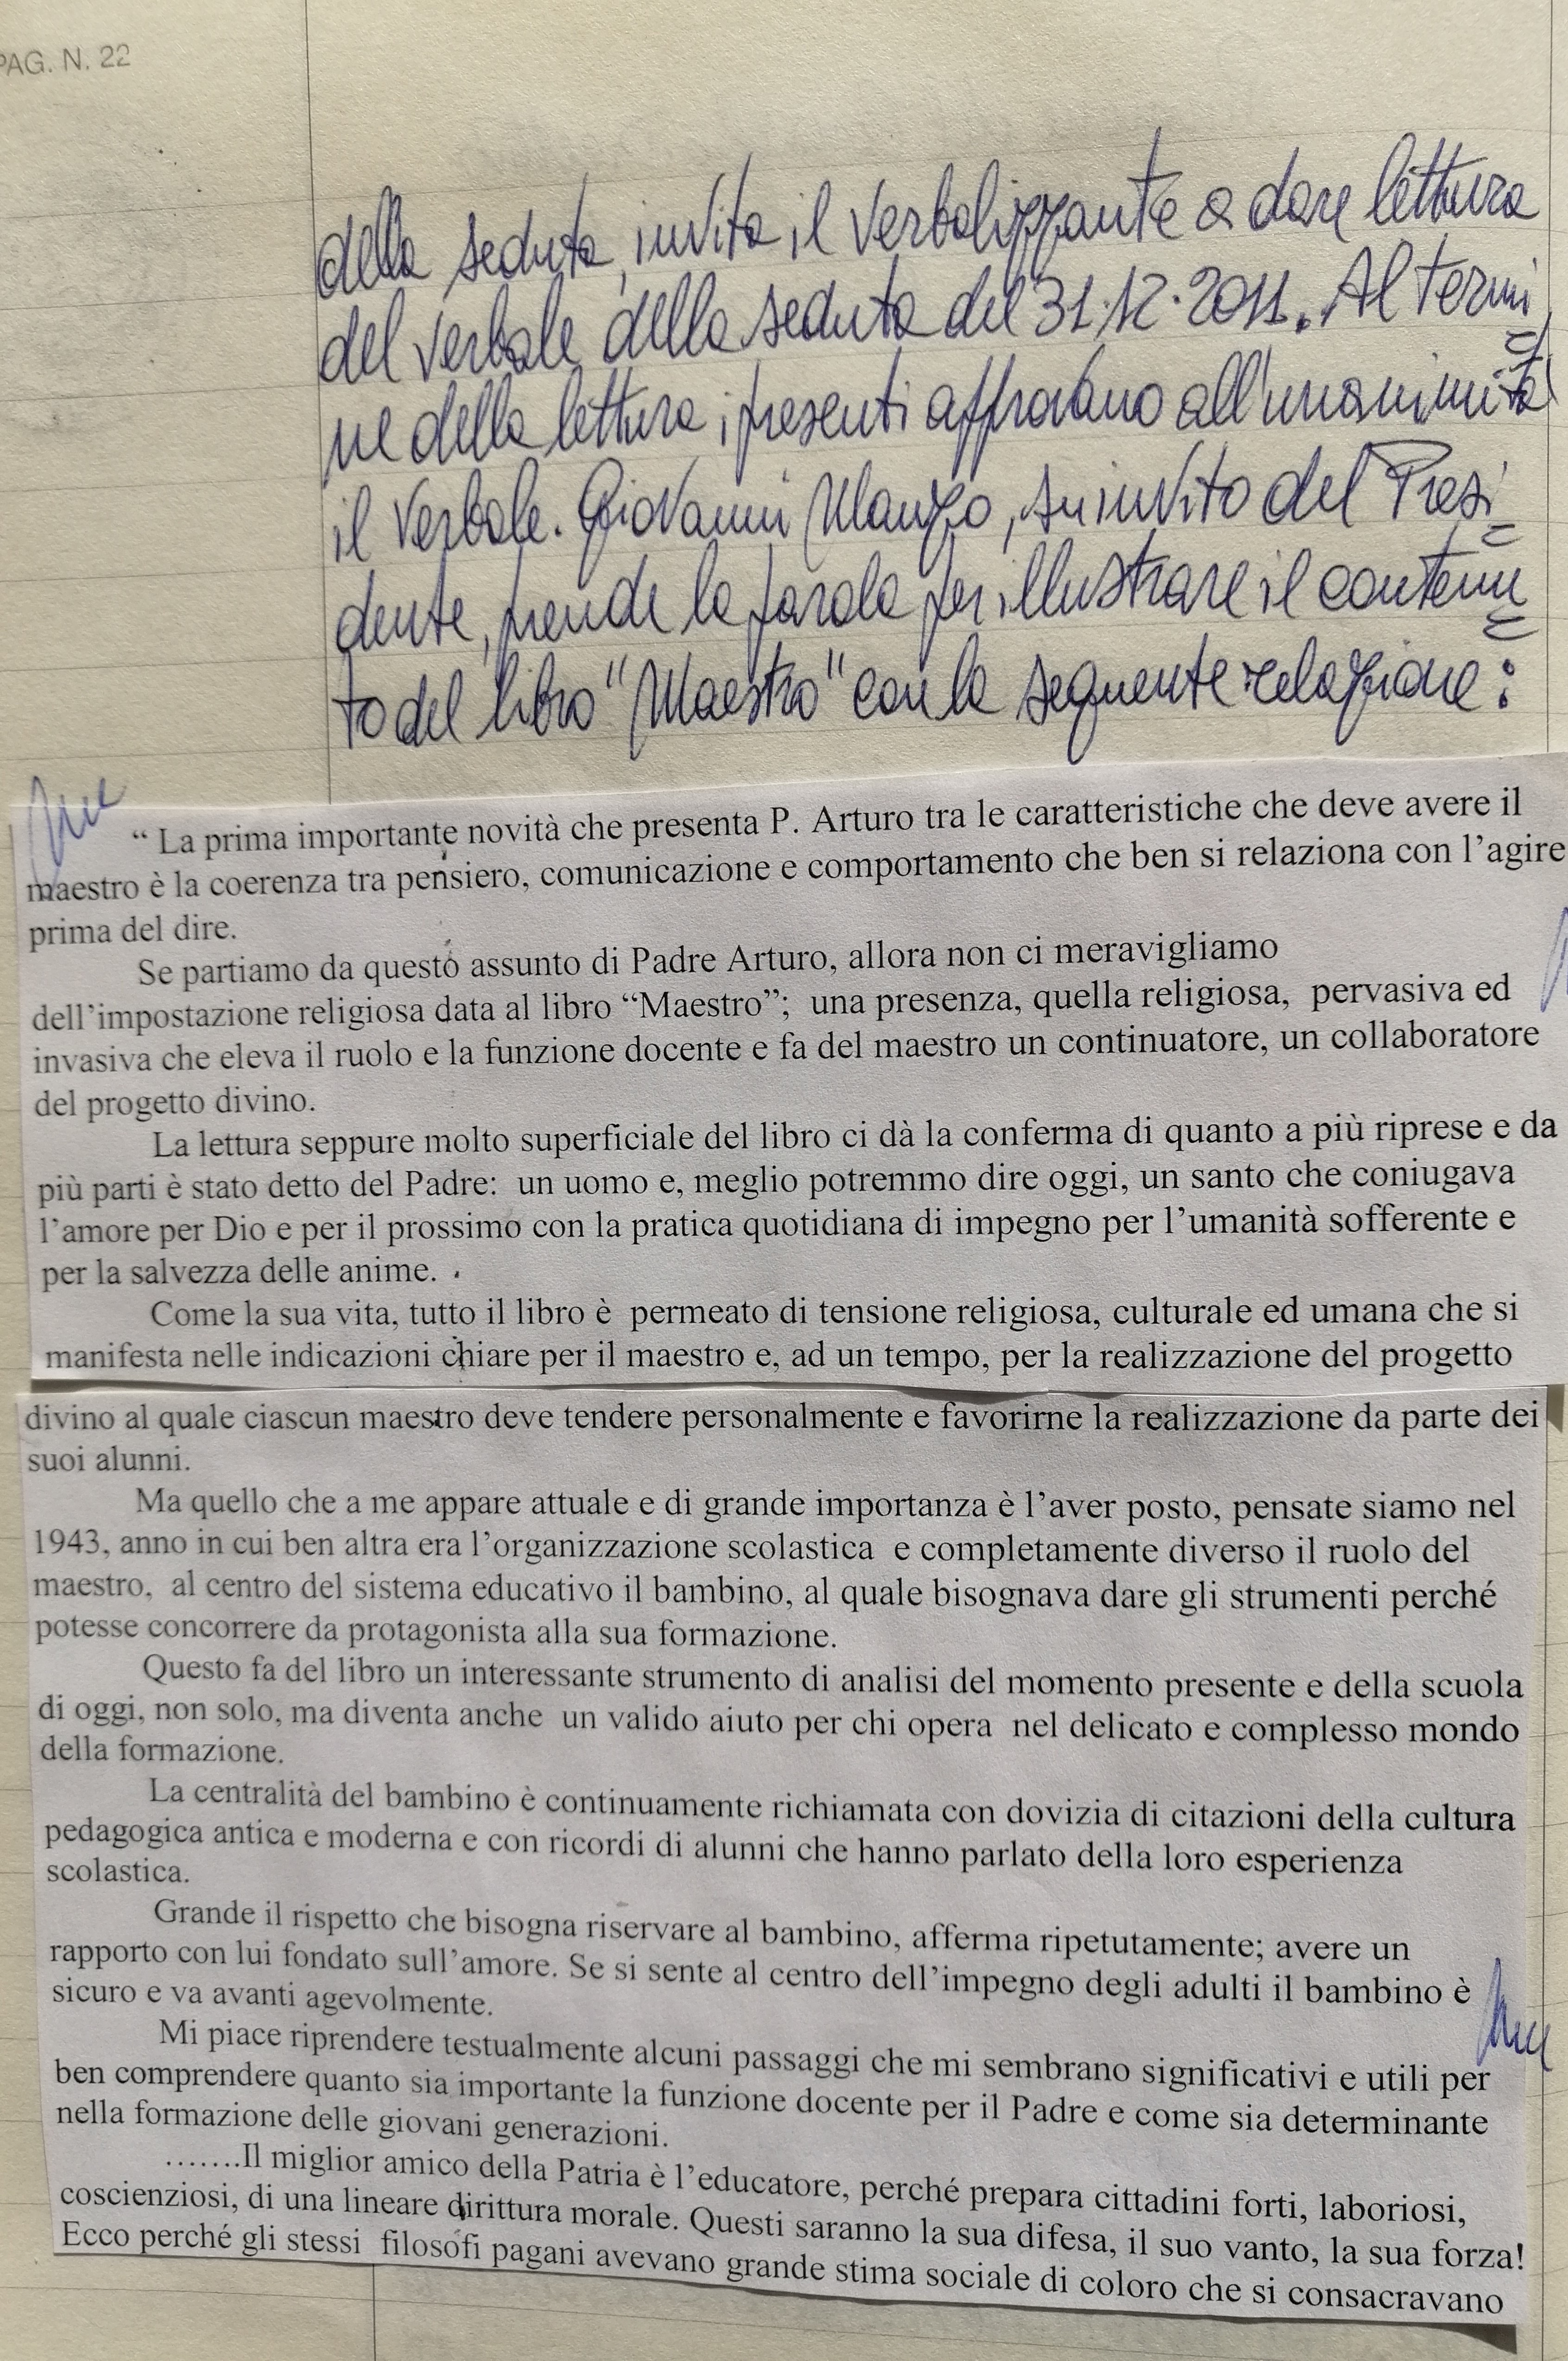 PAG. N. 22
della seduta, invita il verbalizzante a dare lettura
del verbale della seduta del 31.12.2011. Al termi
=
ne della lettura i presenti approvano all'unanimità
il verbale. Giovanni Manzo, su invito del Presi
=
dente, prende la parola per illustrare il contenu
=
to del libro "Maestro" con la seguente relazione:
“ La prima importante novità che presenta P. Arturo tra le caratteristiche che deve avere il
maestro è la coerenza tra pensiero, comunicazione e comportamento che ben si relaziona con l’agire
prima del dire.
Se partiamo da questo assunto di Padre Arturo, allora non ci meravigliamo
dell’impostazione religiosa data al libro “Maestro”; una presenza, quella religiosa, pervasiva ed
invasiva che eleva il ruolo e la funzione docente e fa del maestro un continuatore, un collaboratore
del progetto divino.
La lettura seppure molto superficiale del libro ci dà la conferma di quanto a più riprese e da
più parti è stato detto del Padre: un uomo e, meglio potremmo dire oggi, un santo che coniugava
l’amore per Dio e per il prossimo con la pratica quotidiana di impegno per l’umanità sofferente e
per la salvezza delle anime.
Come la sua vita, tutto il libro è permeato di tensione religiosa, culturale ed umana che si
manifesta nelle indicazioni chiare per il maestro e, ad un tempo, per la realizzazione del progetto
divino al quale ciascun maestro deve tendere personalmente e favorirne la realizzazione da parte dei
suoi alunni.
Ma quello che a me appare attuale e di grande importanza è l’aver posto, pensate siamo nel
1943, anno in cui ben altra era l’organizzazione scolastica e completamente diverso il ruolo del
maestro, al centro del sistema educativo il bambino, al quale bisognava dare gli strumenti perché
potesse concorrere da protagonista alla sua formazione.
Questo fa del libro un interessante strumento di analisi del momento presente e della scuola
di oggi, non solo, ma diventa anche un valido aiuto per chi opera nel delicato e complesso mondo
della formazione.
La centralità del bambino è continuamente richiamata con dovizia di citazioni della cultura
pedagogica antica e moderna e con ricordi di alunni che hanno parlato della loro esperienza
scolastica.
Grande il rispetto che bisogna riservare al bambino, afferma ripetutamente; avere un
rapporto con lui fondato sull’amore. Se si sente al centro dell’impegno degli adulti il bambino è
sicuro e va avanti agevolmente.
Mi piace riprendere testualmente alcuni passaggi che mi sembrano significativi e utili per
ben comprendere quanto sia importante la funzione docente per il Padre e come sia determinante
nella formazione delle giovani generazioni.
…….Il miglior amico della Patria è l’educatore, perché prepara cittadini forti, laboriosi,
coscienziosi, di una lineare dirittura morale. Questi saranno la sua difesa, il suo vanto, la sua forza!
Ecco perché gli stessi filosofi pagani avevano grande stima sociale di coloro che si consacravano